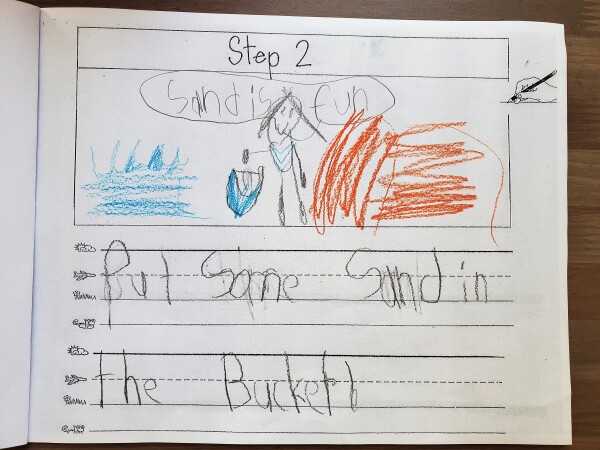 Step 2
Sand is fun
Put Some Sand in
the Bucket!